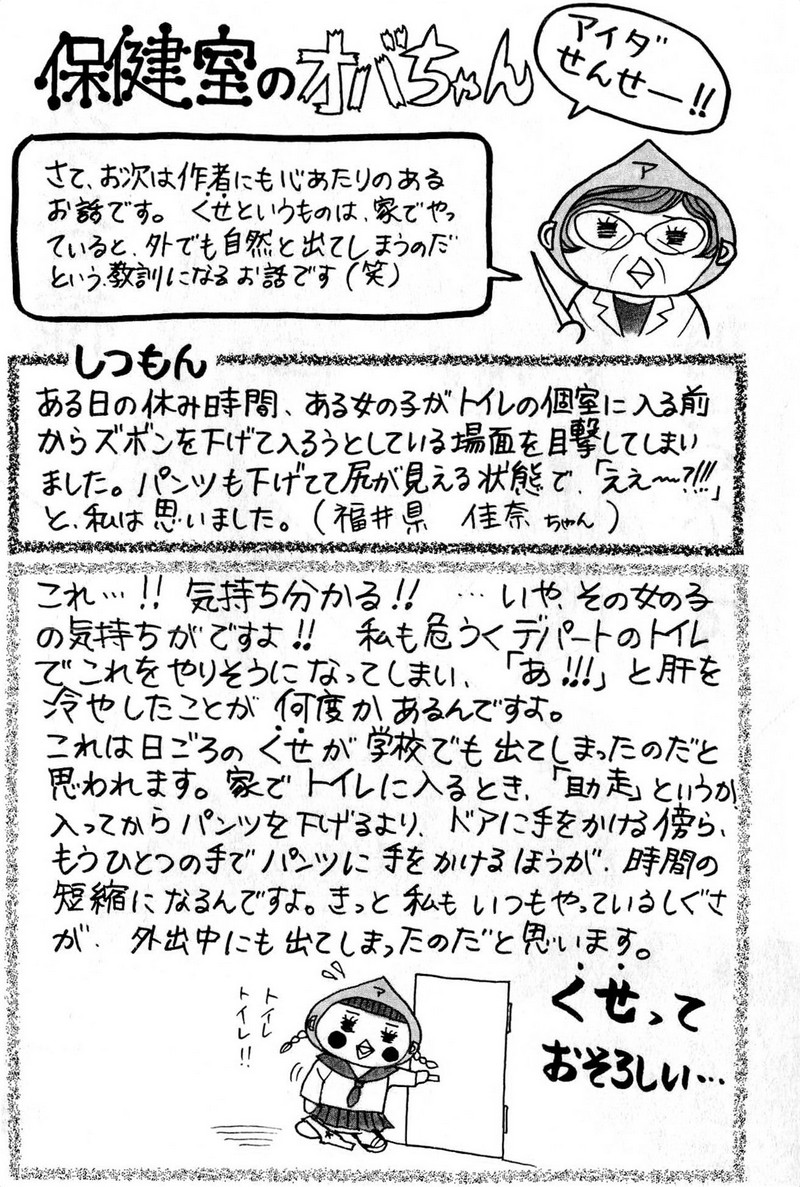 保健室のオバちゃん
アイダ
せんせー!!
ア
さて、お次は作者にも心あたりのある
お話です。 くせというものは、家でやっ
ていると、外でも自然と出てしまうのだ
という、教訓になるお話です(笑)
しつもん
ある日の休み時間、ある女の子がトイレの個室に入る前
からズボンを下げて入ろうとしている場面を目撃してしまい
ました。パンツも下げてて尻が見える状態で、「ええ〜?!!!」
と、私は思いました。(福井県 佳奈ちゃん)
これ…!! 気持ち分かる!! …いや、その女の子
の気持ちがですよ!! 私も危うくデパートのトイレ
でこれをやりそうになってしまい、「あ!!!」と肝を
冷やしたことが何度かあるんですよ。
これは日ごろのくせが学校でも出てしまったのだと
思われます。家でトイレに入るとき、「助走」というか、
入ってからパンツを下げるより、ドアに手をかける傍ら、
もうひとつの手でパンツに手をかけるほうが、時間の
短縮になるんですよ。きっと私もいつもやっているしぐさ
が、外出中にも出てしまったのだと思います。
トイレ
トイレ!!
ア
くせって
おそろしい…